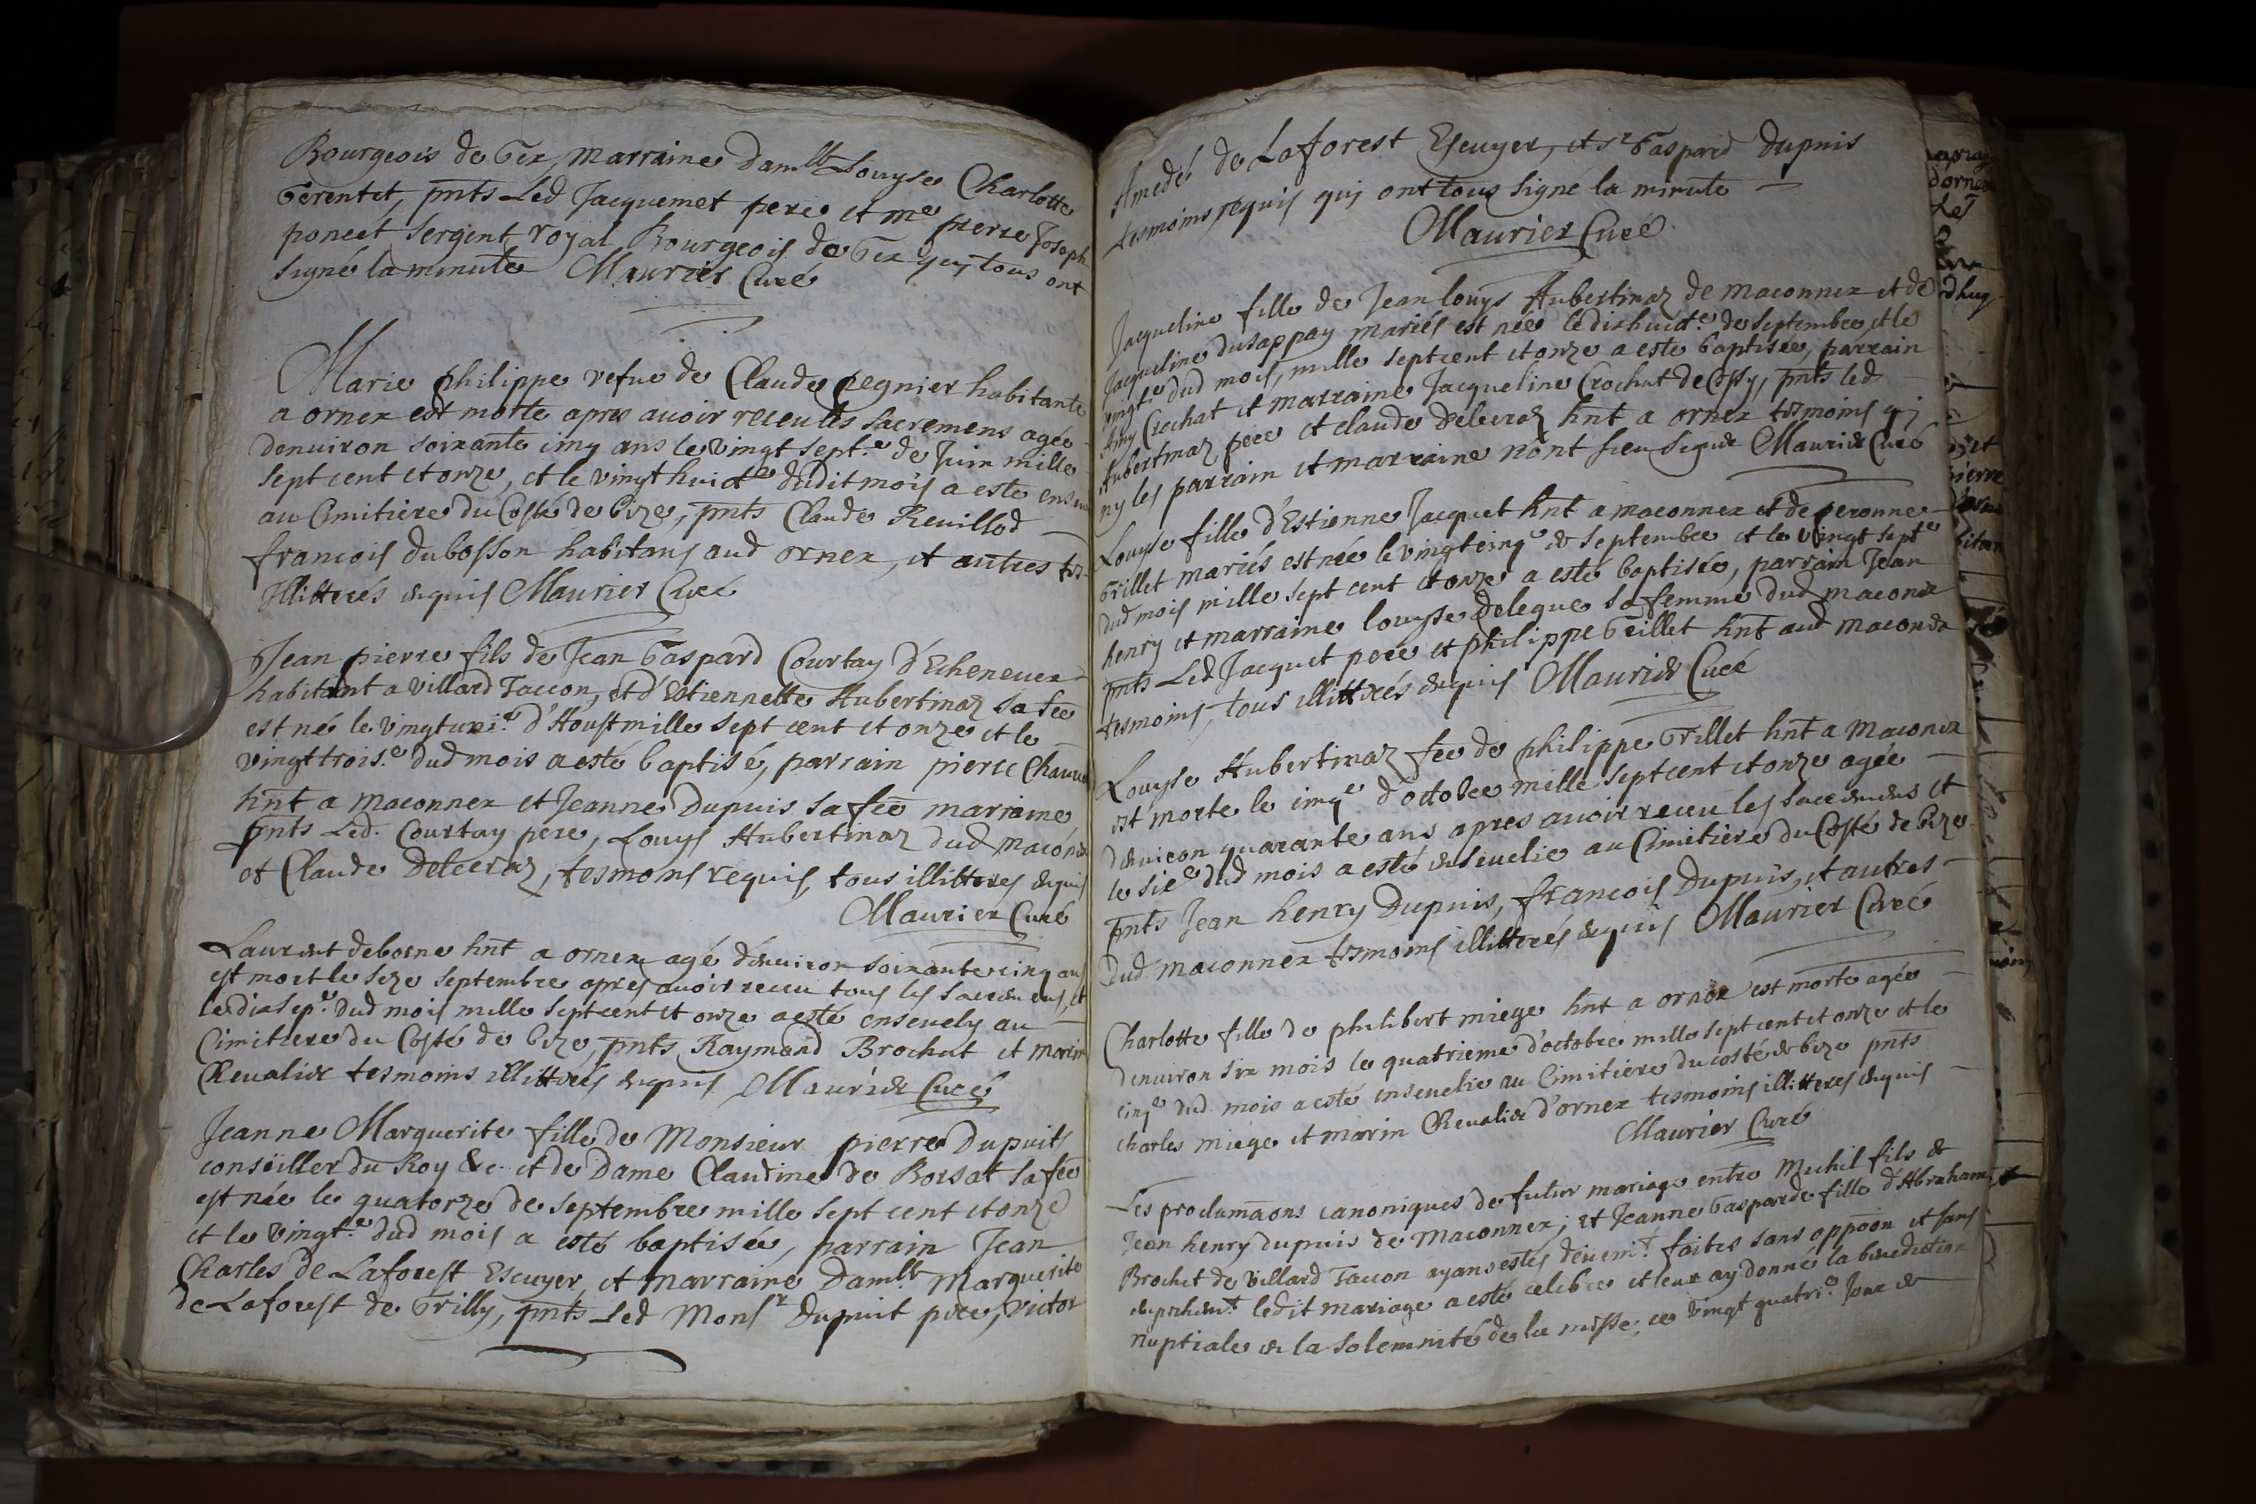 Bourgeois de Gex, Marraine Dam.lle Louyse Charlotte
Gerentet, pnts Led Jacquemet pere et me pierre Joseph
poncet sergent royal Bourgeois de Gex quy tous ont
signé la minute Maurier Curé
Marie philippe vefue de Claude Regnier habitante
a ornex est morte apres auoir receu les sacremens agée
denuiron soixante cinq ans le vingt sept.e de Juin mille
sept cent et onze, et le vingt huict.e dudit mois a este
au Cimitiere du Costé de bize, pnts Claude Reuillod
francois dubosson habitans aud ornex, et autres
Illitterés enquis Maurier Curé
Jean pierre fils de Jean Gaspard Courtay d'Echeneuex
habitant a Villard Taccon, et d'Estiennette Hubertinaz sa fée
est né le vingtuni.e d'Aoust mille sept cent et onze et le
vingt trois.e dud mois a esté baptisé, parrain pierre
hnt a Maconnex et Jeanne Dupuis sa fée marraine
pnts Led. Courtay pere, Louys Hubertinaz dud maconex
et Claude Delecraz, tesmoins requis, tous illitteres enquis
Maurier Curé
Laurent deborne hnt a ornex agé d'enuiron soixante cinq ans
est mort le seze septembre apres auoir receu tous les sacremens, et
le dix sep.e dud mois mille sept cent et onze a esté enseuely au
Cimitiere du Costé de bize, pnts Raymond Brochut et marin
Cheualier tesmoins illitterés enquis Maurier Curé
Jeanne Marguerite fille de Monsieur pierre Dupuits
conseiller du Roy &c. et de Dame Claudine de Borsat sa fée
est née le quatorze de septembre mille sept cent et onze
et le vingt.e dud mois a esté baptisée, parrain Jean
Charles de Laforest Escuyer et marraine Damlle Marguerite
de Laforest de Grilly, pnts Led Monsr Dupuit pere, victor
Amedé de Laforest Escuyer, et sr Gaspard Dupuis
tesmoins requis quj ont tous signé la minute
Maurier Curé
Jacqueline fille de Jean louys Hubertinaz de maconnex et de
Jacqueline dusappay mariés est née le dixhuict.e de septembre et le
vingt.e dud mois, mille sept cent et onze a esté baptisée, parrain
Crochat et marraine Jacqueline Crochat de Cessy, pnts led
Hubertinaz pere et claude delecraz hnt a ornex tesmoins qj
ny les parrain et marraine n'ont sceu signer Maurier Curé
Louyse fille d'Estienne Jacquet hnt a maconnex et de peronne
Grillet mariés est née le vingt cinq.e de septembre et le vingt sept.e
dud mois mille sept cent et onze a esté baptisée, parrain Jean
henry et marraine louyse deleque sa femme dud maconex
pnts Led Jacquet pere et philippe Grillet hnt aud maconex
tesmoins, tous illitterés enquis Maurier Curé
Louyse Hubertinaz fée de philippe Grillet hnt a Maconex
est morte le cinq.e d'octobre mille sept cent et onze agée
denuiron quarante ans apres auoir receu les sacremens et
le sie dud mois a esté enseuelie au Cimitiere du Costé de bize
pnts Jean henry Dupuis, francois Dupuis, et autres
dud maconnex tesmoins illitterés enquis Maurier Curé
Charlotte fille de philibert miege hnt a ornex est morte agée
denuiron six mois le quatrieme d'octobre mille sept cent et onze et le
cinq.e dud. mois a esté enseuelie au Cimitiere du costé de bize pnts
charles miege et marin Cheualier d'ornex tesmoins illitteres enquis
Maurier Curé
Les proclamaons canoniques de futur mariage entre Michel fils de
Jean henry dupuis de Maconnex; et Jeanne Gasparde fille d'Abraham
Brochet de Villard Taccon ayans estés deuemt. faites sans oppoon et sans
empeschemt. ledit mariage a esté celebré et leur ay donné la benediction
nuptiale en la solemnité de la messe, ce vingt quatri.e Jour de